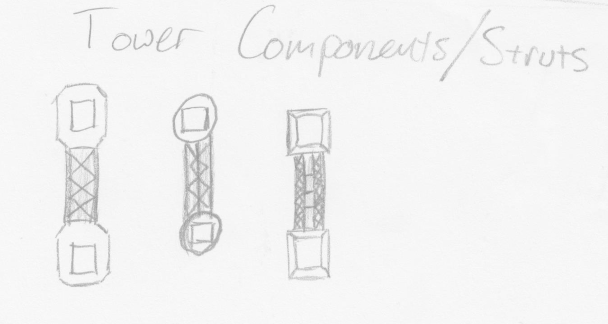 Tower Components/Struts